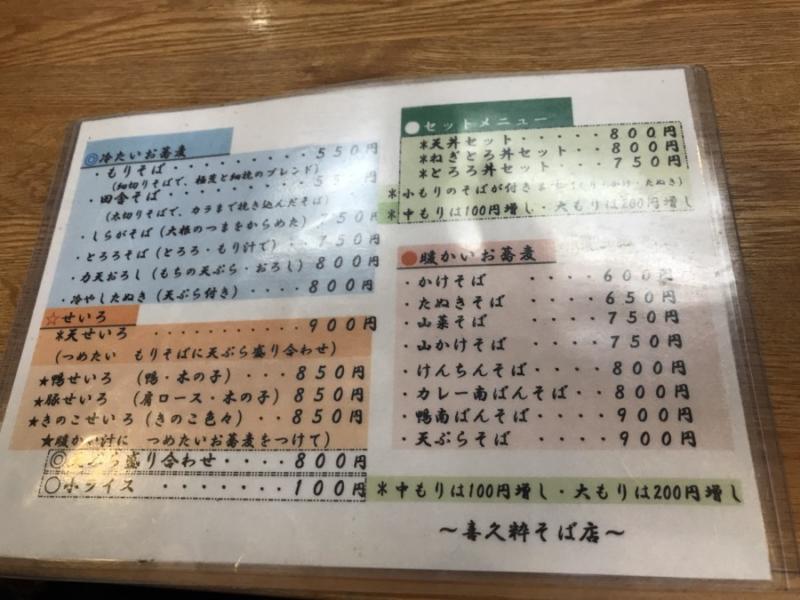 ◎冷たいお蕎麦
・もりそば・・・・・・550円
(細切りそばで、極荒と細挽のブレンド)
・田舎そば・・・・・・550円
(太切りそばで、カラまで挽き込んだそば)
・しらがそば(大根のつまをからめた)750円
・とろろそば(とろろ・もり汁で)・750円
・力天おろし(もちの天ぷら・おろし)800円
・冷やしたぬき(天ぷら付き)・・・800円
☆せいろ
*天せいろ・・・・・・・・・・・900円
(つめたい もりそばに天ぷら盛り合わせ)
★鴨せいろ (鴨・木の子)・・・850円
★豚せいろ (肩ロース・木の子)・850円
★きのこせいろ(きのこ色々)・・・850円
★暖かい汁に つめたいお蕎麦をつけて)
◎天ぷら盛り合わせ・・・・・800円
○小ライス・・・・・・・・・100円
●セットメニュー
*天丼セット・・・・・・800円
*ねぎとろ丼セット・・・800円
*とろろ丼セット・・・・750円
*小もりのそばが付きます(もり・かけ・たぬき)
*中もりは100円増し・大もりは200円増し
●暖かいお蕎麦
・かけそば ・・・・600円
・たぬきそば ・・・・650円
・山菜そば ・・・・750円
・山かけそば ・・・・750円
・けんちんそば・・・・800円
・カレー南ばんそば・・800円
・鴨南ばんそば・・・・900円
・天ぷらそば ・・・・900円
*中もりは100円増し・大もりは200円増し
～喜久粋そば店～